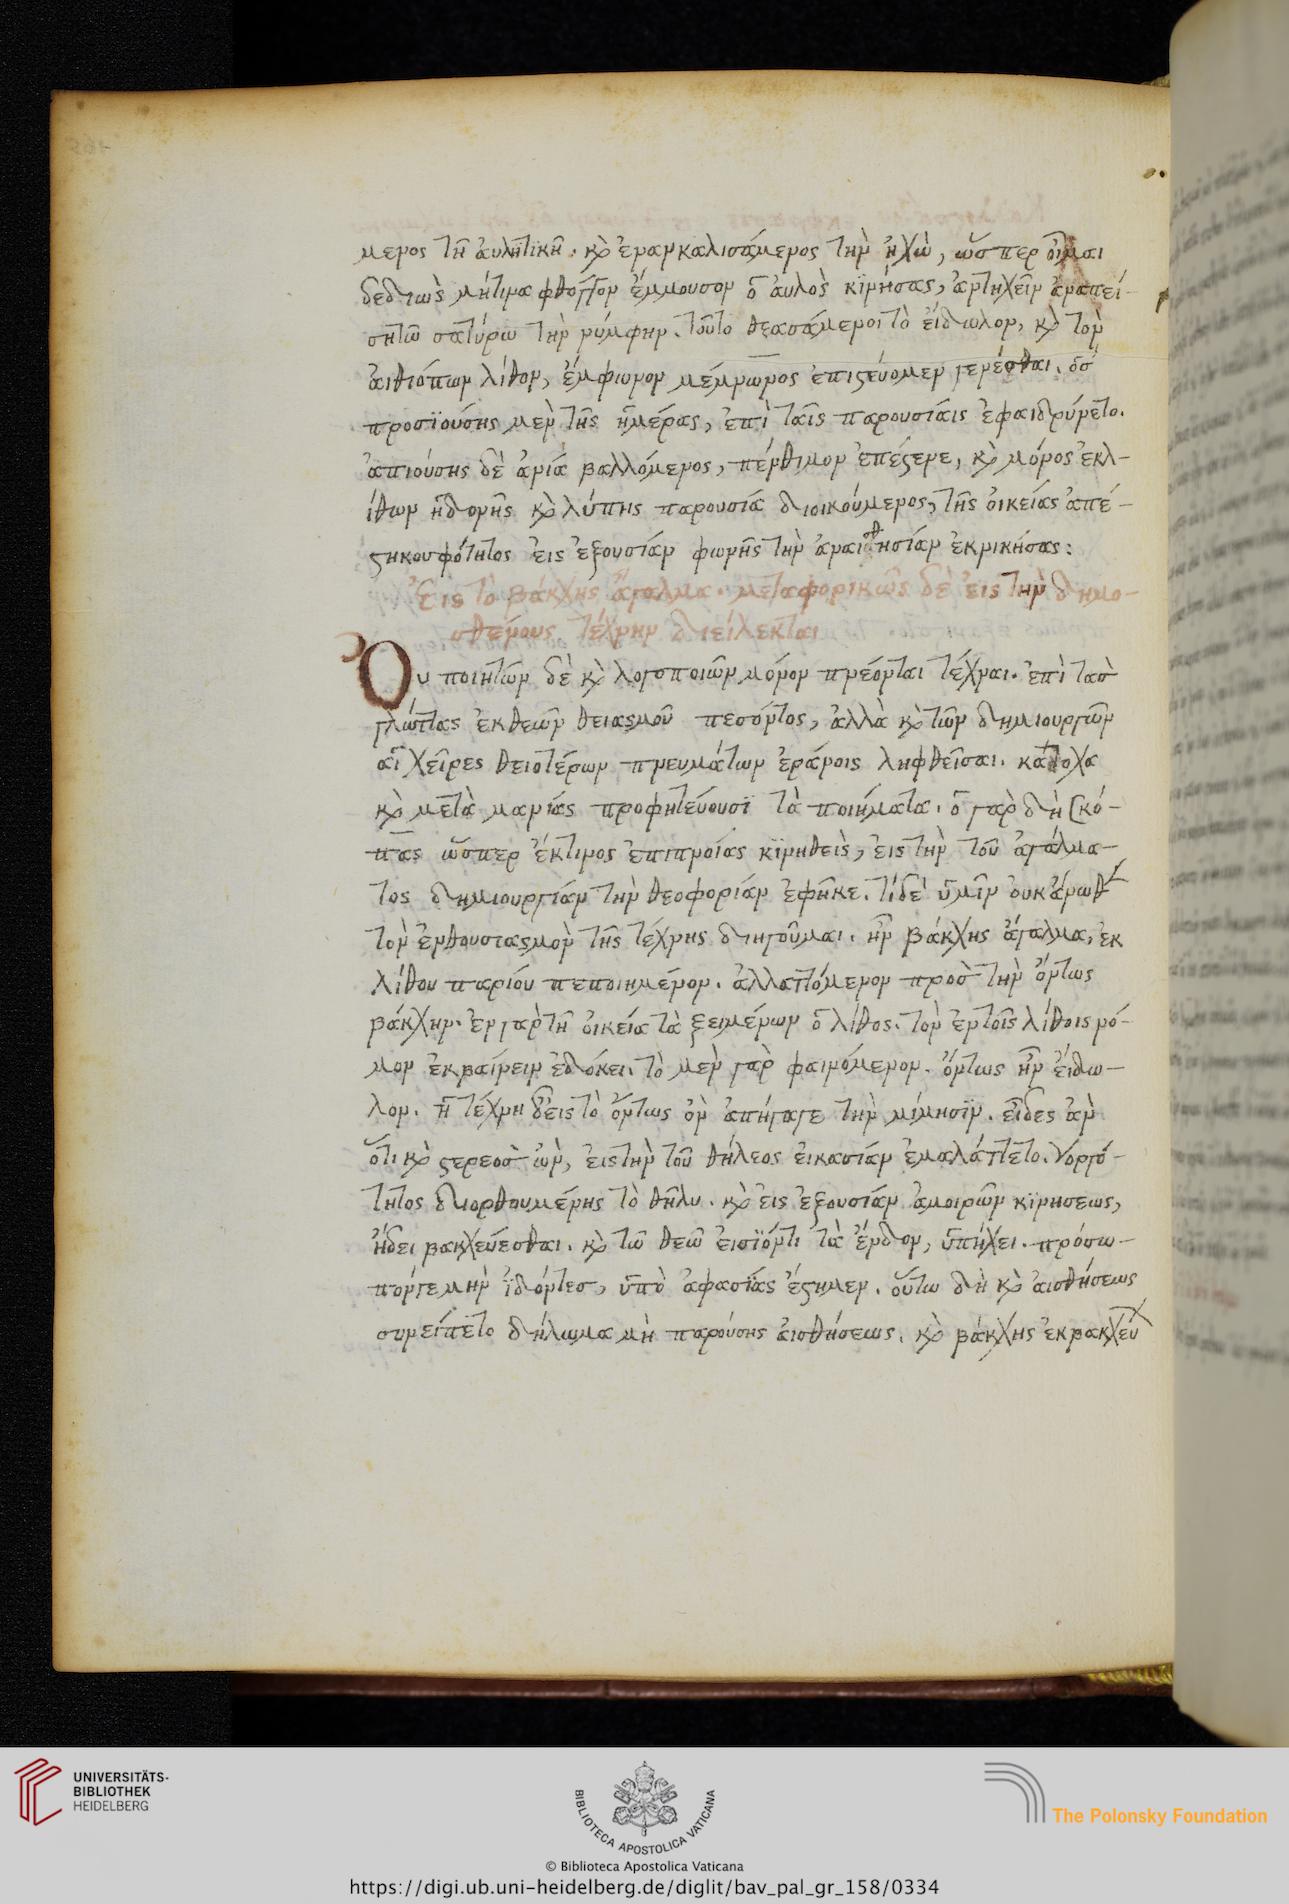 μενος τῆ ἀυλητικῆ. κ̀ ἐναγκαλισάμενος την ἠχὼ, ὥσπερ ὄιμαι
δεδιὼς μήτινα φθόγγον ἔμμουσον ὁ ἀυλὸς κϊνήσας, ἀντηχεῖν ἀναπεί-
ση τῶ σατύρω τὴν νύμφην. τοῦτο θεασάμενοι τὸ εἴδωλον, κ̀ τὸν
ἀιθιόπων λίθον, ἔμφωνον μέμνωνος ἐπιστεύομεν γενέσθαι. ὃσ
προσϊούσης μὲν τῆς ἡμέρας, ἐπὶ ταῖς παρουσίαις ἐφαιδρύνετο.
ἀπιούσης δὲ ἀνία βαλλόμενος, πένθιμον ἐπέστενε, κ̀ μόνος ἐκ λ-
ίθων ἡδονῆς κ̀ λύπης παρουσία διοικούμενος, τῆς ὀικείας ἀπέ-
στη κουφότητος εἰς ἐξουσίαν φωνῆς τὴν ἀναισθησίαν ἐκνικήσας:
Ἐις τὸ βάκχης ἄγαλμα. μεταφορικῶς δὲ εἰς τὴν δημο-
σθένους τέχνην διείλεκται
Ου ποιητῶν δὲ κ̀ λογοποιῶν μόνον πνέονται τέχναι. ἐπὶ τὰσ
γλώττας ἐκ θεῶν θειασμοῦ πεσόντος, ἀλλὰ κ̀ τῶν δημιουργῶν
αἱ χεῖρες θειοτέρων πνευμάτων ἐράνοις ληφθεῖσαι. κάτοχα
κ̀ μετὰ μανίας προφητεύουσϊ τὰ ποιήματα. ὁ γὰρ δὴ Σκό-
πας ὥσπερ ἔκ τινος ἐπιπνοίας κϊνηθεὶς, εἰς τὴν τοῦ ἀγάλμα-
τος δημιουργίαν τὴν θεοφορίαν ἐφῆκε. τί δὲ ὑμῖν ουκ ἄνωθ
τὸν ἐνθουσιασμὸν τῆς τέχνης διηγοῦμαι. ἦν βάκχης ἄγαλμα, ἐκ
λίθου παρίου πεποιημένον. ἀλλαττόμενον πρὸσ τὴν ὄντως
βάκχην. ἐν γὰρ τῆ ὀικεία τάξει μένων ὁ λίθος. τὸν ἐν τοῖς λίθοις νό-
μον ἐκβαίνειν ἐδόκει. τὸ μὲν γὰρ φαινόμενον. ὄντως ἦν εἴδω-
λον. ἡ τέχνη δ' εἰς τὸ ὄντως ὂν ἀπήγαγε τὴν μίμησϊν. εἶδες ἂν
ὅτι κ̀ στερεὸσ ὢν, εἰς τὴν τοῦ θήλεος εἰκασίαν ἐμαλάττετο. γοργό-
τητος διορθουμένης τὸ θῆλυ. κ̀ εἰς ἐξουσίαν ἀμοιρῶν κϊνήσεως,
ἤδει βακχεύεσθαι. κ̀ τῶ θεῶ εἰσϊόντι τὰ ἔνδον, ὑπήχει. πρόσω-
πόν γε μὴν ἰδόντεσ, ὑπὸ ἀφασίας ἔστημεν. οὕτω δὴ κ̀ ἀισθήσεως
συνείπετο δήλωμα μὴ παρούσης ἀισθήσεως. κ̀ βάκχης ἐκβακχευ
UNIVERSITÄTS-
BIBLIOTHEK
HEIDELBERG
BIBLIOTECA APOSTOLICA VATICANA
The Polonsky Foundation
© Biblioteca Apostolica Vaticana
https://digi.ub.uni-heidelberg.de/diglit/bav_pal_gr_158/0334